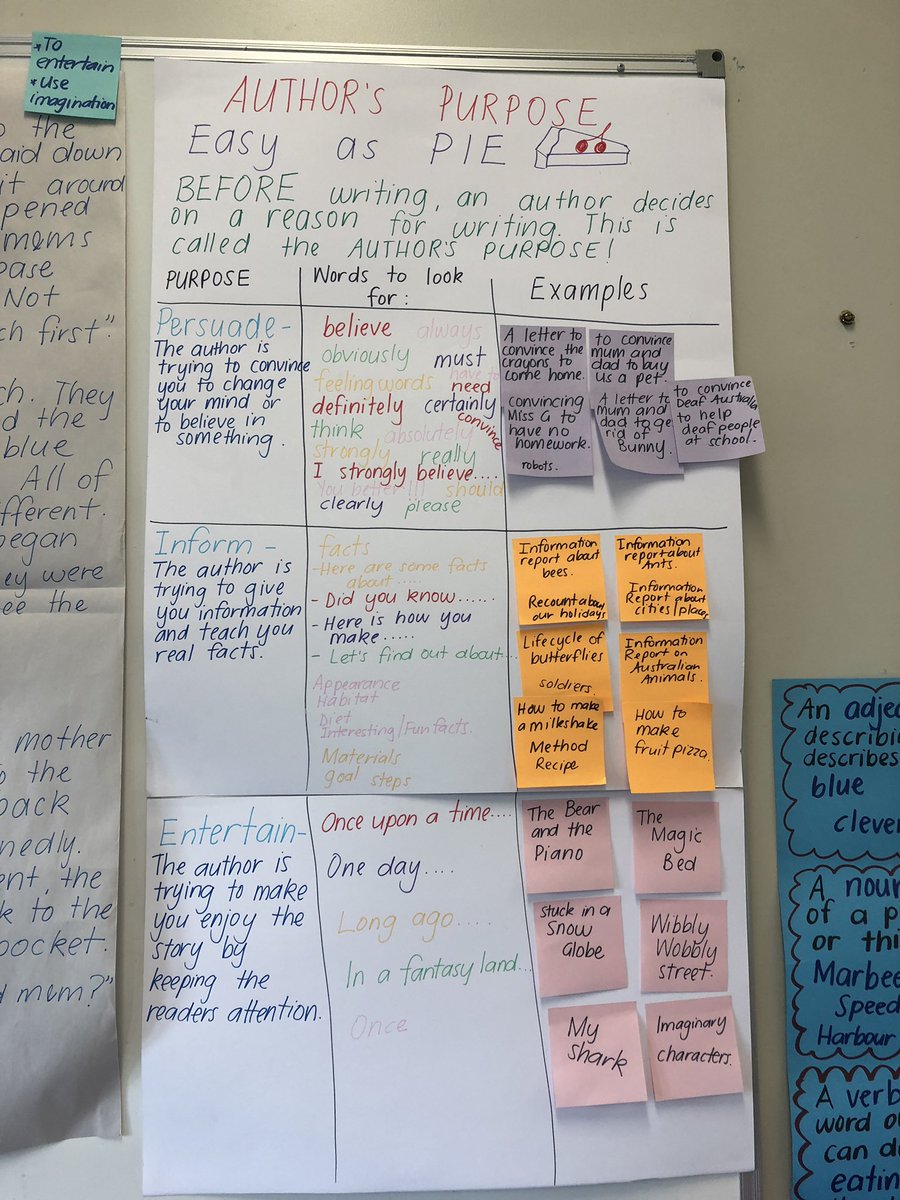 *To
entertain
*Use
imagination
the
aid down
it around
pened
moms
ease
Not
ch first".
ch. They
d the
blue
All of
fferent.
began
ey were
ee the
mother
the
back
nedly.
ent, the
k to the
pocket.
d mum?"
AUTHOR'S PURPOSE
Easy as PIE
BEFORE writing, an author decides
on a reason for writing. This is
called the AUTHOR'S PURPOSE!
PURPOSE
Words to look
for:
Examples
Persuade-
The author is
trying to convince
you to change
your mind or
to believe in
something.
believe always
obviously must
have to
feeling words need
definitely certainly
convince
think absolutely
strongly really
I strongly believe....
You better!!! should
clearly please
A letter to
convince the
crayons to
come home.
convincing
Miss G to
have no
homework.
robots.
to convince
mum and
dad to buy
us a pet.
A letter to
mum and
dad to get
rid of
Bunny.
to convince
Deaf Australia
to help
deaf people
at school.
Inform-
The author is
trying to give
you information
and teach you
real facts.
facts
-Here are some facts
about.....
- Did you know......
- Here is how you
make.....
- Let's find out about...
Appearance
Habitat
Diet
Interesting/Fun facts.
Materials
goal steps
Information
report about
bees.
Recount about
our holidays
Information
report about
Ants.
Information
Report about
cities/places
Lifecycle of
butterflies
soldiers.
Information
Report on
Australian
Animals.
How to make
a milkshake
Method
Recipe
How to
make
fruit pizza.
Entertain-
The author is
trying to make
you enjoy the
story by
keeping the
readers attention.
Once upon a time....
One day....
Long ago.....
In a fantasy land...
Once
The Bear
and the
Piano
The
Magic
Bed
Stuck in a
Snow
Globe
Wibbly
Wobbly
street.
My
shark
Imaginary
characters.
An adjec
describi
describes
blue
clever
A noun
of a p
or thi
Marbee
Speed
Harbour
A verb
word o
can d
eatin